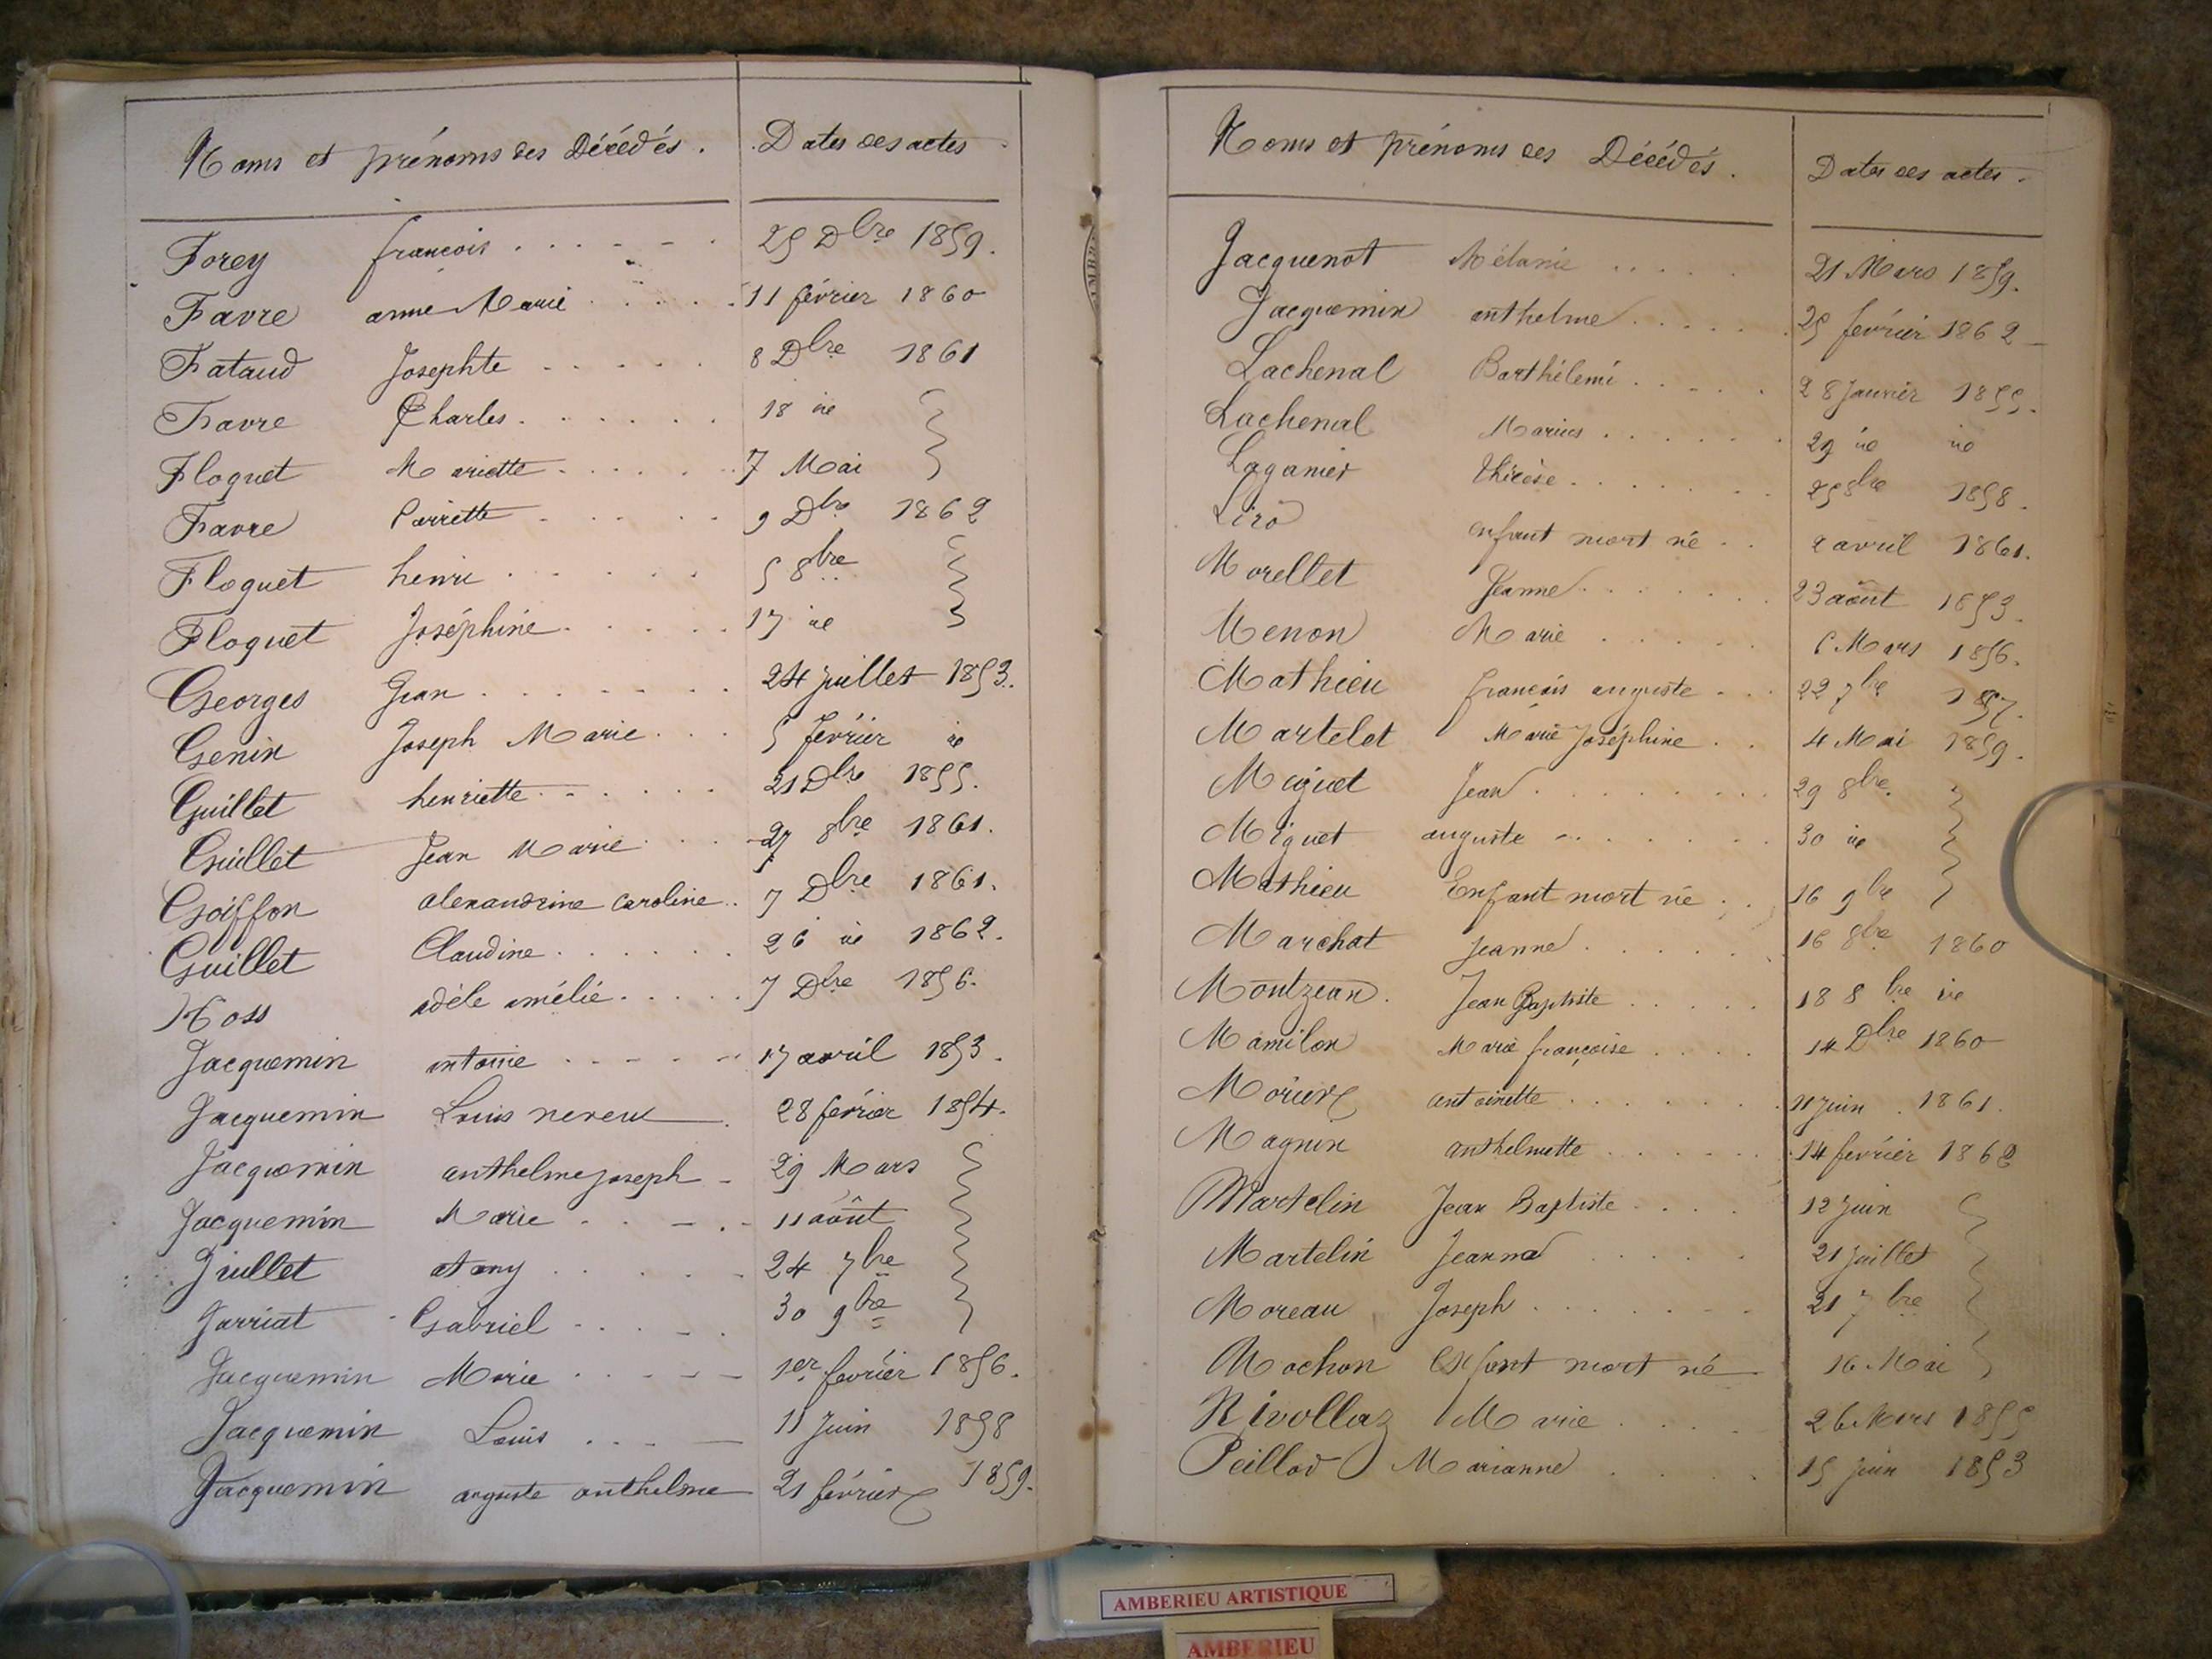 Noms et prénoms des Décédés. Dates des actes
Forey françois 25 Dbre 1859.
Favre anne Marie 11 février 1860
Fataud Josephte 8 Dbre 1861
Favre Charles 18 id
Floquet Mariette 7 Mai
Favre Pierrette 9 Dbre 1862
Floquet henri 5 8bre
Floquet Joséphine 17 id
Georges Jean 24 juillet 1853.
Genin Joseph Marie 5 février id
Guillet henriette 21 Dbre 1855.
Guillet Jean Marie 27 8bre 1861.
Goiffon alexandrine caroline 7 Dbre 1861.
Guillet Claudine 26 id 1862.
Hoss adèle amélie 7 Dbre 1856.
Jacquemin antoine 17 avril 1853.
Jacquemin Louis neveu 28 février 1854.
Jacquemin anthelme joseph 29 Mars
Jacquemin Marie 11 août
Juillet 24 7bre
Jarriat Gabriel 30 9bre
Jacquemin Marie 1er février 1856.
Jacquemin Louis 11 Juin 1858
Jacquemin auguste anthelme 21 février 1859.
Noms et prénoms des Décédés. Dates des actes.
Jacquenot Mélanie 21 Mars 1859.
Jacquemin anthelme 25 février 1862
Lachenal Barthélemi 28 Janvier 1855.
Lachenal Marius 29 id id
Laganier thérèse 25 8bre 1858.
Liró enfant mort né 2 avril 1861.
Morellet Jeanne 23 août 1853.
Menon Marie 6 Mars 1856.
Mathieu françois auguste 22 7bre 1857.
Martelet Marie Joséphine 4 Mai 1859.
Miguet Jean 29 8bre.
Miguet auguste 30 id
Mathieu Enfant mort né 16 9bre
Marchat Jeanne 16 8bre 1860
Montzean Jean Baptiste 18 8bre id
Mamilon Marie françoise 14 Dbre 1860
Morier antoinette 11 juin 1861.
Magnin anthelmette 14 février 1862
Martelin Jean Baptiste 12 Juin
Martelin Jeanne 21 juillet
Moreau Joseph 21 7bre
Mochon Enfant mort né 16 Mai
Rivollaz Marie 26 Mars 1855
Peillod Marianne 15 juin 1853
AMBERIEU ARTISTIQUE
AMBERIEU